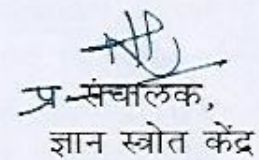 प्र संचालक,
ज्ञान स्त्रोत केंद्र